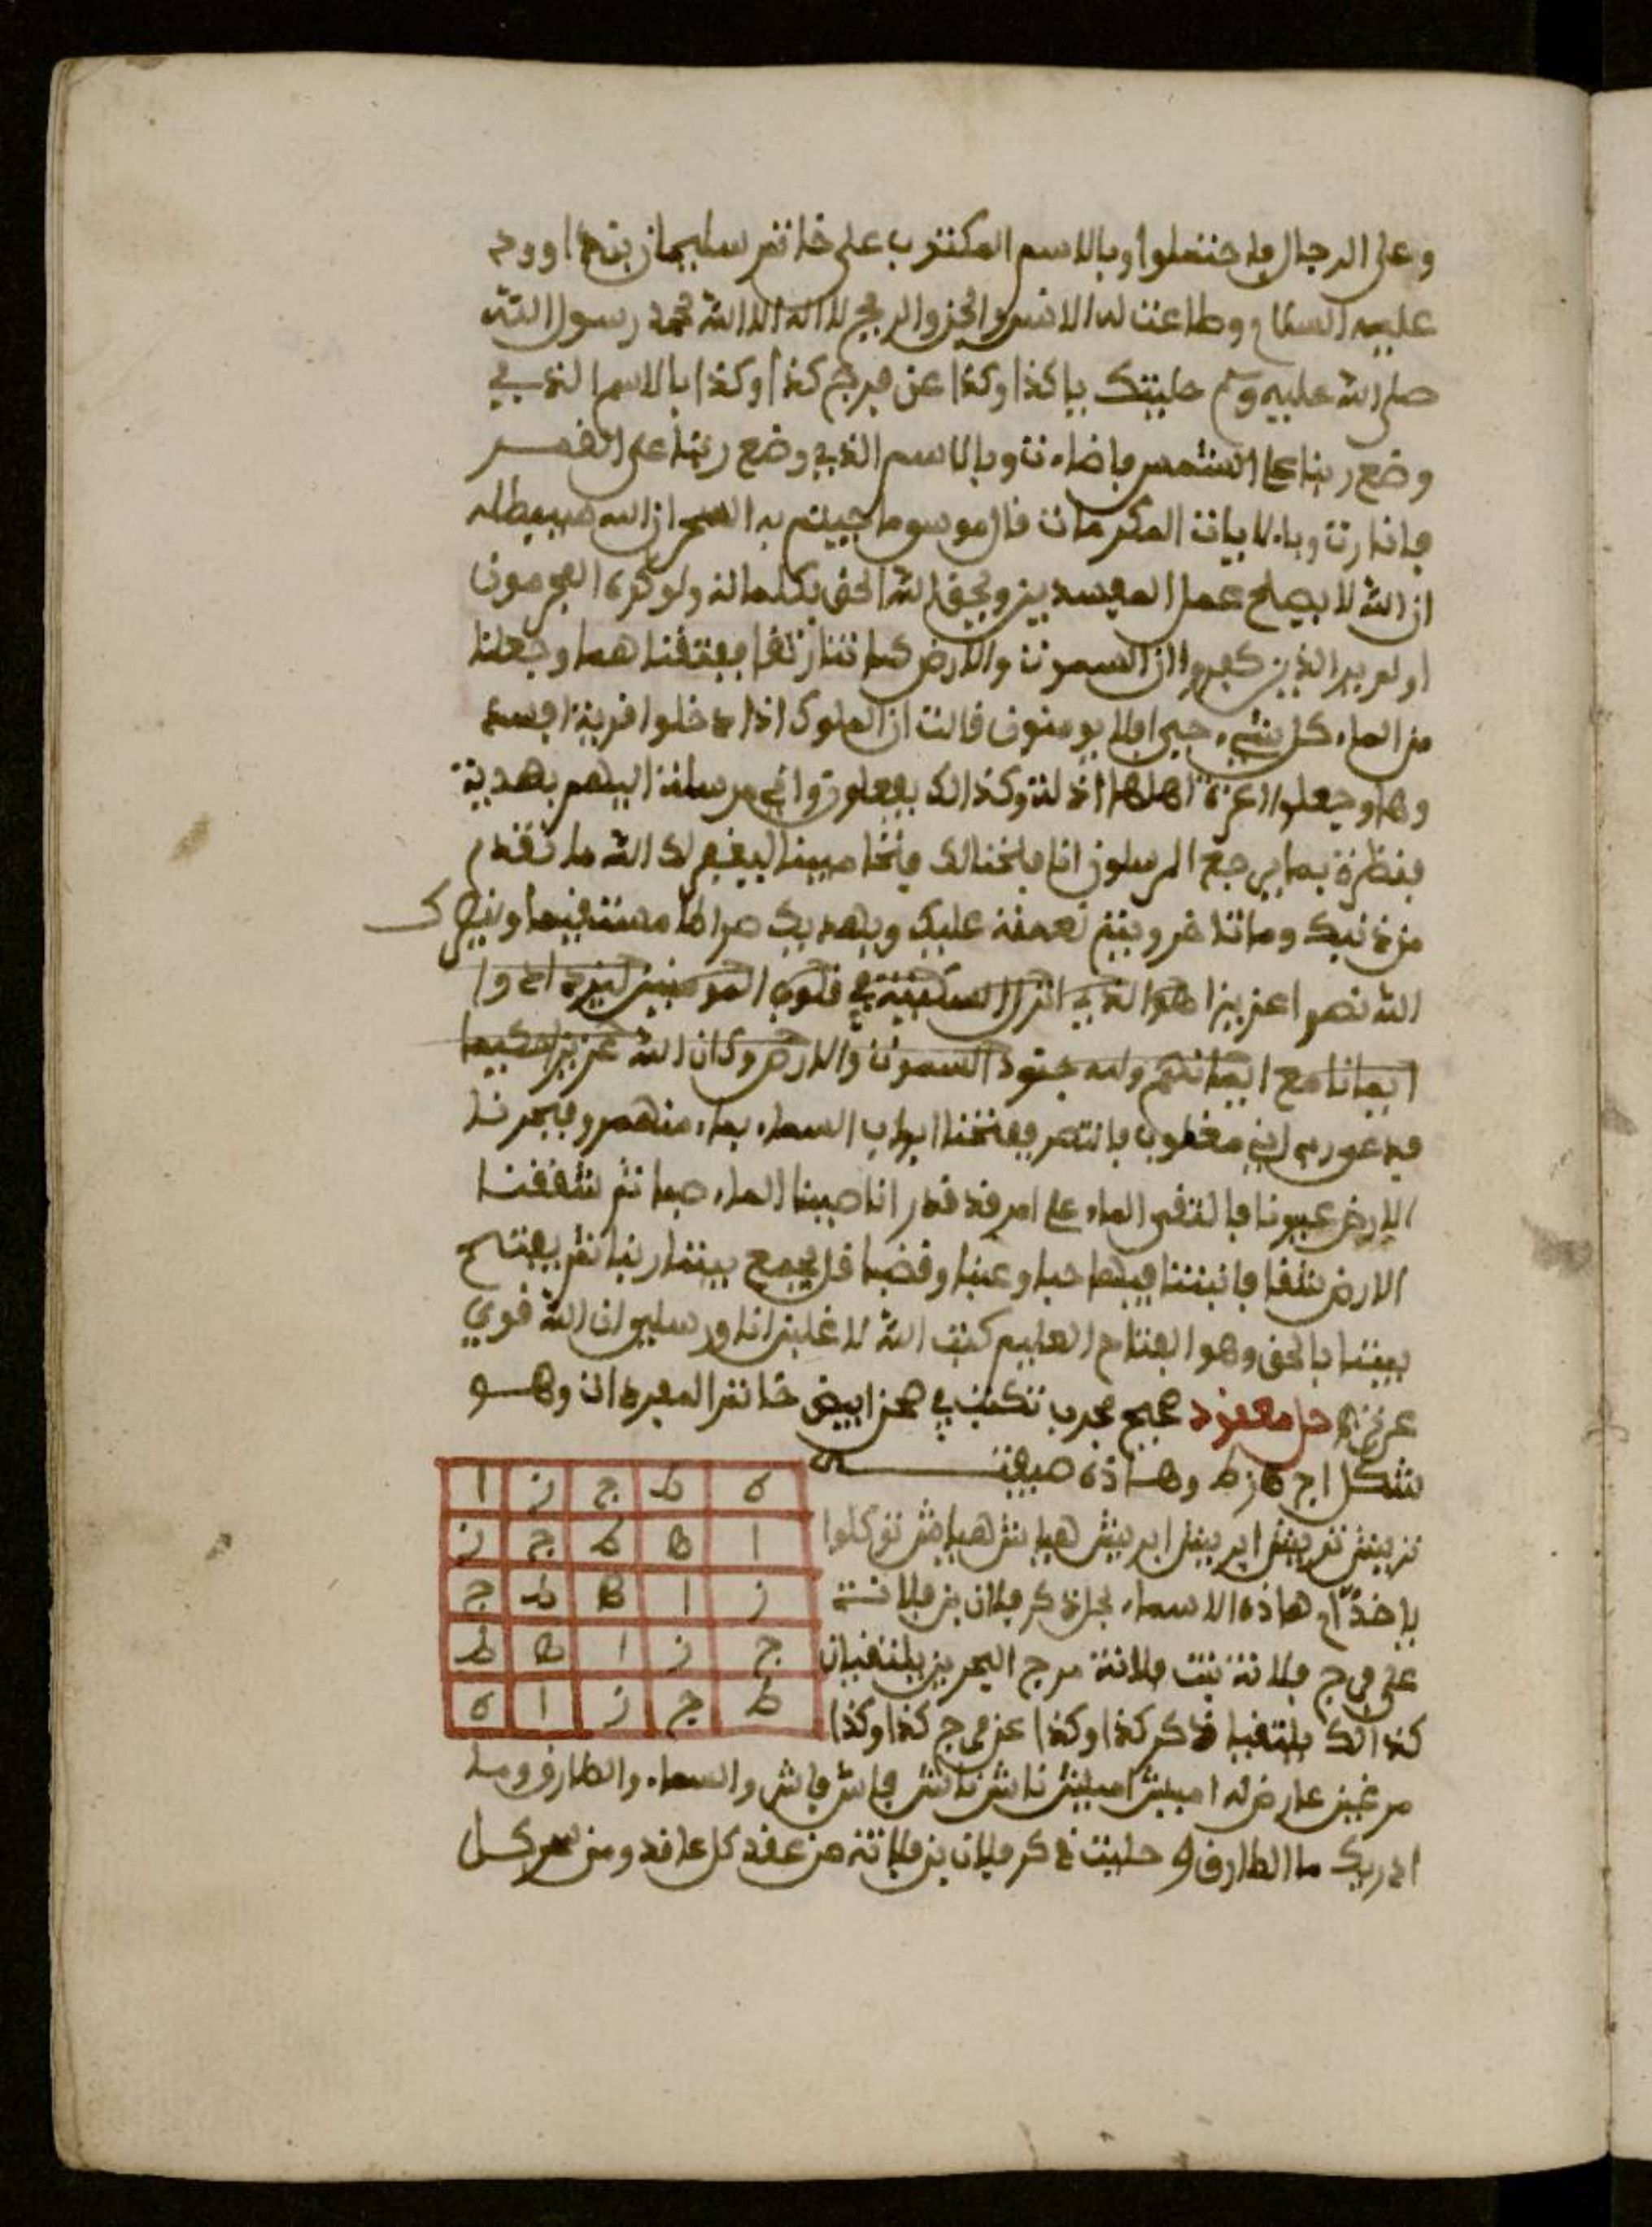 وعلى الرجال فاحتملوا وبالاسم المكتوب على خاتم سليمان بن داوود
عليه السلام وطاعت له الانس والجن والريح لا اله الا الله محمد رسول الله
صلى الله عليه وسلم حليتك يا كذا وكذا عن فرج كذا وكذا بالاسم الذي
وضع ربنا على الشمس فاضاءت وبالاسم الذي وضع ربنا على القمر
فانارت وبالايات المكرمات قال موسى ما جيتم به السحر ان الله سيبطله
ان الله لا يصلح عمل المفسدين ويحق الله الحق بكلماته ولو كره المجرمون
اولم ير الذين كفروا ان السموت والارض كانتا رتقا ففتقناهما وجعلنا
من الماء كل شيء حي افلا يومنون قالت ان الملوك اذا دخلوا قرية افسد
وها وجعلوا اعزة اهلها اذلة وكذالك يفعلون واني مرسلة اليهم بهدية
فنظرة بما يرجع المرسلون انا فتحنا لك فتحا مبينا ليغفر لك الله ما تقدم
من ذنبك وما تاخر ويتم نعمته عليك ويهديك صراطا مستقيما وينصرك
الله نصرا عزيزا هو الذي انزل السكينة في قلوب المومنين ليزدادوا
ايمانا مع ايمانهم ولله جنود السموت والارض وكان الله عزيزا حكيما
فدعى ربه اني مغلوب فانتصر ففتحنا ابواب السماء بماء منهمر وفجرنا
الارض عيونا فالتقى الماء على امر قد قدر انا صببنا الماء صبا ثم شققنا
الارض شقا فانبتنا فيها حبا وعنبا وقضبا قل يجمع بيننا ربنا ثم يفتح
بيننا بالحق وهو الفتاح العليم كتب الله لاغلبن انا ورسلي ان الله قوي
عزيز حل معقود صحيح مجرب تكتب في صحن ابيض خاتم المفردات وهو
شكل اجهزط وهاذه صفته
ه ط ج ز ا
ا ه ط ج ز
ز ا ه ط ج
ج ز ا ه ط
ط ج ز ا ه
تربيش تربيش ابربيش ابربيش هياش هياش توكلوا
يا خدام هاذه الاسماء بحل ذكر فلان بن فلانة
على فرج فلانة بنت فلانة مرج البحرين يلتقيان
كذالك يلتقيا ذكر كذا وكذا عن فرج كذا وكذا
من غير عارض له امييش امييش ناش ناش فاش فاش والسماء والطارق وما
ادريك ما الطارق حليت ذكر فلان بن فلانة من عقد كل عاقد ومن سحر كل